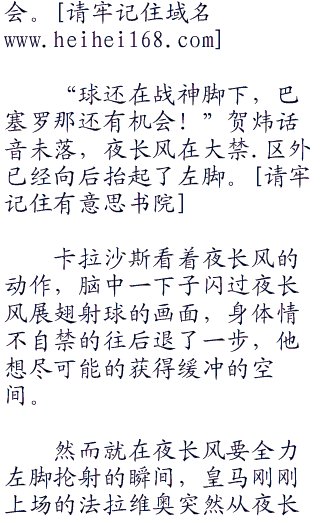 会。[请牢记住域名
www.heihei168.com]
“球还在战神脚下，巴
塞罗那还有机会！”贺炜话
音未落，夜长风在大禁.区外
已经向后抬起了左脚。[请牢
记住有意思书院]
卡拉沙斯看着夜长风的
动作，脑中一下子闪过夜长
风展翅射球的画面，身体情
不自禁的往后退了一步，他
想尽可能的获得缓冲的空
间。
然而就在夜长风要全力
左脚抡射的瞬间，皇马刚刚
上场的法拉维奥突然从夜长